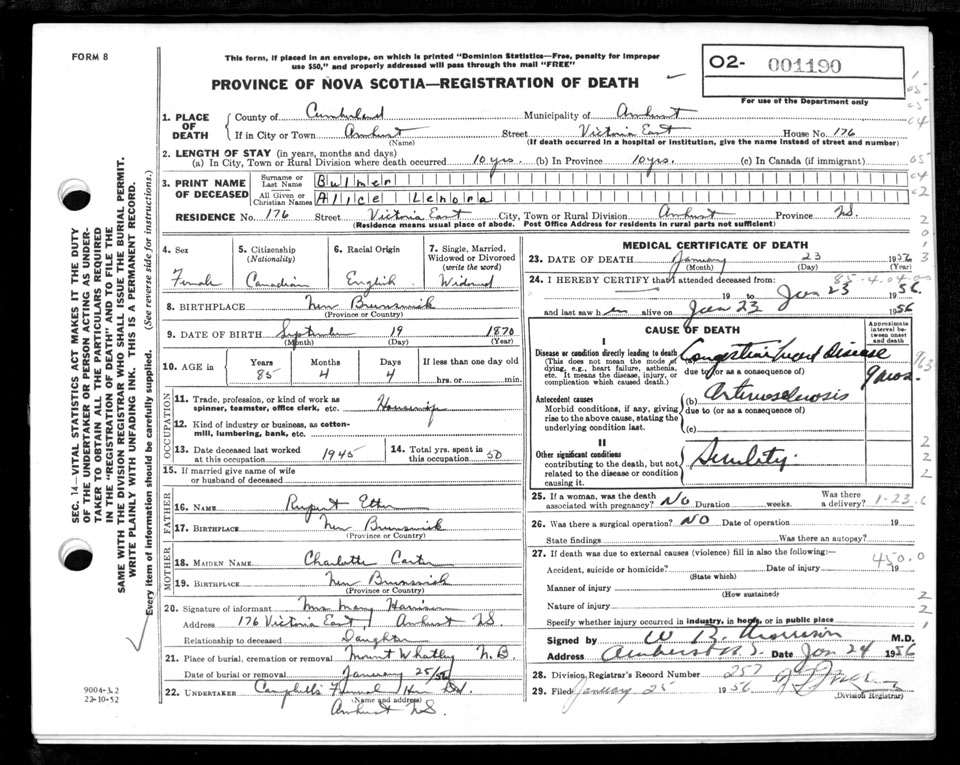 FORM 8
This form, if placed in an envelope, on which is printed "Dominion Statistics—Free, penalty for improper
use $50," and properly addressed will pass through the mail "FREE"
PROVINCE OF NOVA SCOTIA—REGISTRATION OF DEATH
O2- 001190
For use of the Department only
1. PLACE OF DEATH
County of Cumberland Municipality of Amherst
If in City or Town Amherst Street Victoria East House No. 176
(Name) (If death occurred in a hospital or institution, give the name instead of street and number)
2. LENGTH OF STAY (in years, months and days)
(a) In City, Town or Rural Division where death occurred 10 yrs. (b) In Province 10 yrs. (c) In Canada (if immigrant)
3. PRINT NAME OF DECEASED
Surname or Last Name Bulmer
All Given or Christian Names Alice Lenora
RESIDENCE No. 176 Street Victoria East City, Town or Rural Division Amherst Province N.S.
(Residence means usual place of abode. Post Office Address for residents in rural parts not sufficient)
4. Sex
Female
5. Citizenship
(Nationality)
Canadian
6. Racial Origin
English
7. Single, Married,
Widowed or Divorced
(write the word)
Widowed
8. BIRTHPLACE New Brunswick
(Province or Country)
9. DATE OF BIRTH September 19 1870
(Month) (Day) (Year)
10. AGE in
Years Months Days If less than one day old
85 4 4 hrs. or min.
OCCUPATION
11. Trade, profession, or kind of work as
spinner, teamster, office clerk, etc. Housewife
12. Kind of industry or business, as cotton-
mill, lumbering, bank, etc.
13. Date deceased last worked
at this occupation 1945
14. Total yrs. spent in
this occupation 50
15. If married give name of wife
or husband of deceased
FATHER
16. NAME Rupert Etter
17. BIRTHPLACE New Brunswick
(Province or Country)
MOTHER
18. MAIDEN NAME Charlotte Carter
19. BIRTHPLACE New Brunswick
(Province or Country)
20. Signature of informant Mrs Mary Harrison
Address 176 Victoria East Amherst N.S.
Relationship to deceased Daughter
21. Place of burial, cremation or removal Mount Whatley N.B.
Date of burial or removal January 25/56
22. UNDERTAKER Campbell's Funeral
(Name and address)
Amherst N.S.
MEDICAL CERTIFICATE OF DEATH
23. DATE OF DEATH January 23 1956
(Month) (Day) (Year)
24. I HEREBY CERTIFY that I attended deceased from:
85-4-04
19 to Jan 23 1956.
and last saw her alive on Jan 23 1956
CAUSE OF DEATH
Approximate
interval be-
tween onset
and death
I
Disease or condition directly leading to death
(This does not mean the mode of
dying, e.g., heart failure, asthenia,
etc. It means the disease, injury, or
complication which caused death.)
Congestive heart disease
due to (or as a consequence of)
9 mos.
Antecedent causes
Morbid conditions, if any, giving
rise to the above cause, stating the
underlying condition last.
(b) Arteriosclerosis
due to (or as a consequence of)
(c)
II
Other significant conditions
contributing to the death, but not
related to the disease or condition
causing it.
Senility.
25. If a woman, was the death
associated with pregnancy? NO Duration weeks. Was there
a delivery?
1-23-6
26. Was there a surgical operation? NO Date of operation 19
State findings Was there an autopsy?
27. If death was due to external causes (violence) fill in also the following:—
450.0
Accident, suicide or homicide? Date of injury 19
(State which)
Manner of injury
(How sustained)
Nature of injury
Specify whether injury occurred in industry, in home, or in public place
Signed by W. R. M.D.
Address Amherst N.S. Date Jan 24 1956
28. Division Registrar's Record Number 257
29. Filed January 25 1956
(Division Registrar)
SEC. 14—VITAL STATISTICS ACT MAKES IT THE DUTY
OF THE UNDERTAKER OR PERSON ACTING AS UNDER-
TAKER TO OBTAIN ALL THE PARTICULARS REQUIRED
IN THE "REGISTRATION OF DEATH" AND TO FILE THE
SAME WITH THE DIVISION REGISTRAR WHO SHALL ISSUE THE BURIAL PERMIT.
WRITE PLAINLY WITH UNFADING INK. THIS IS A PERMANENT RECORD.
Every item of information should be carefully supplied. (See reverse side for instructions.)
9004-3.2
22-10-52